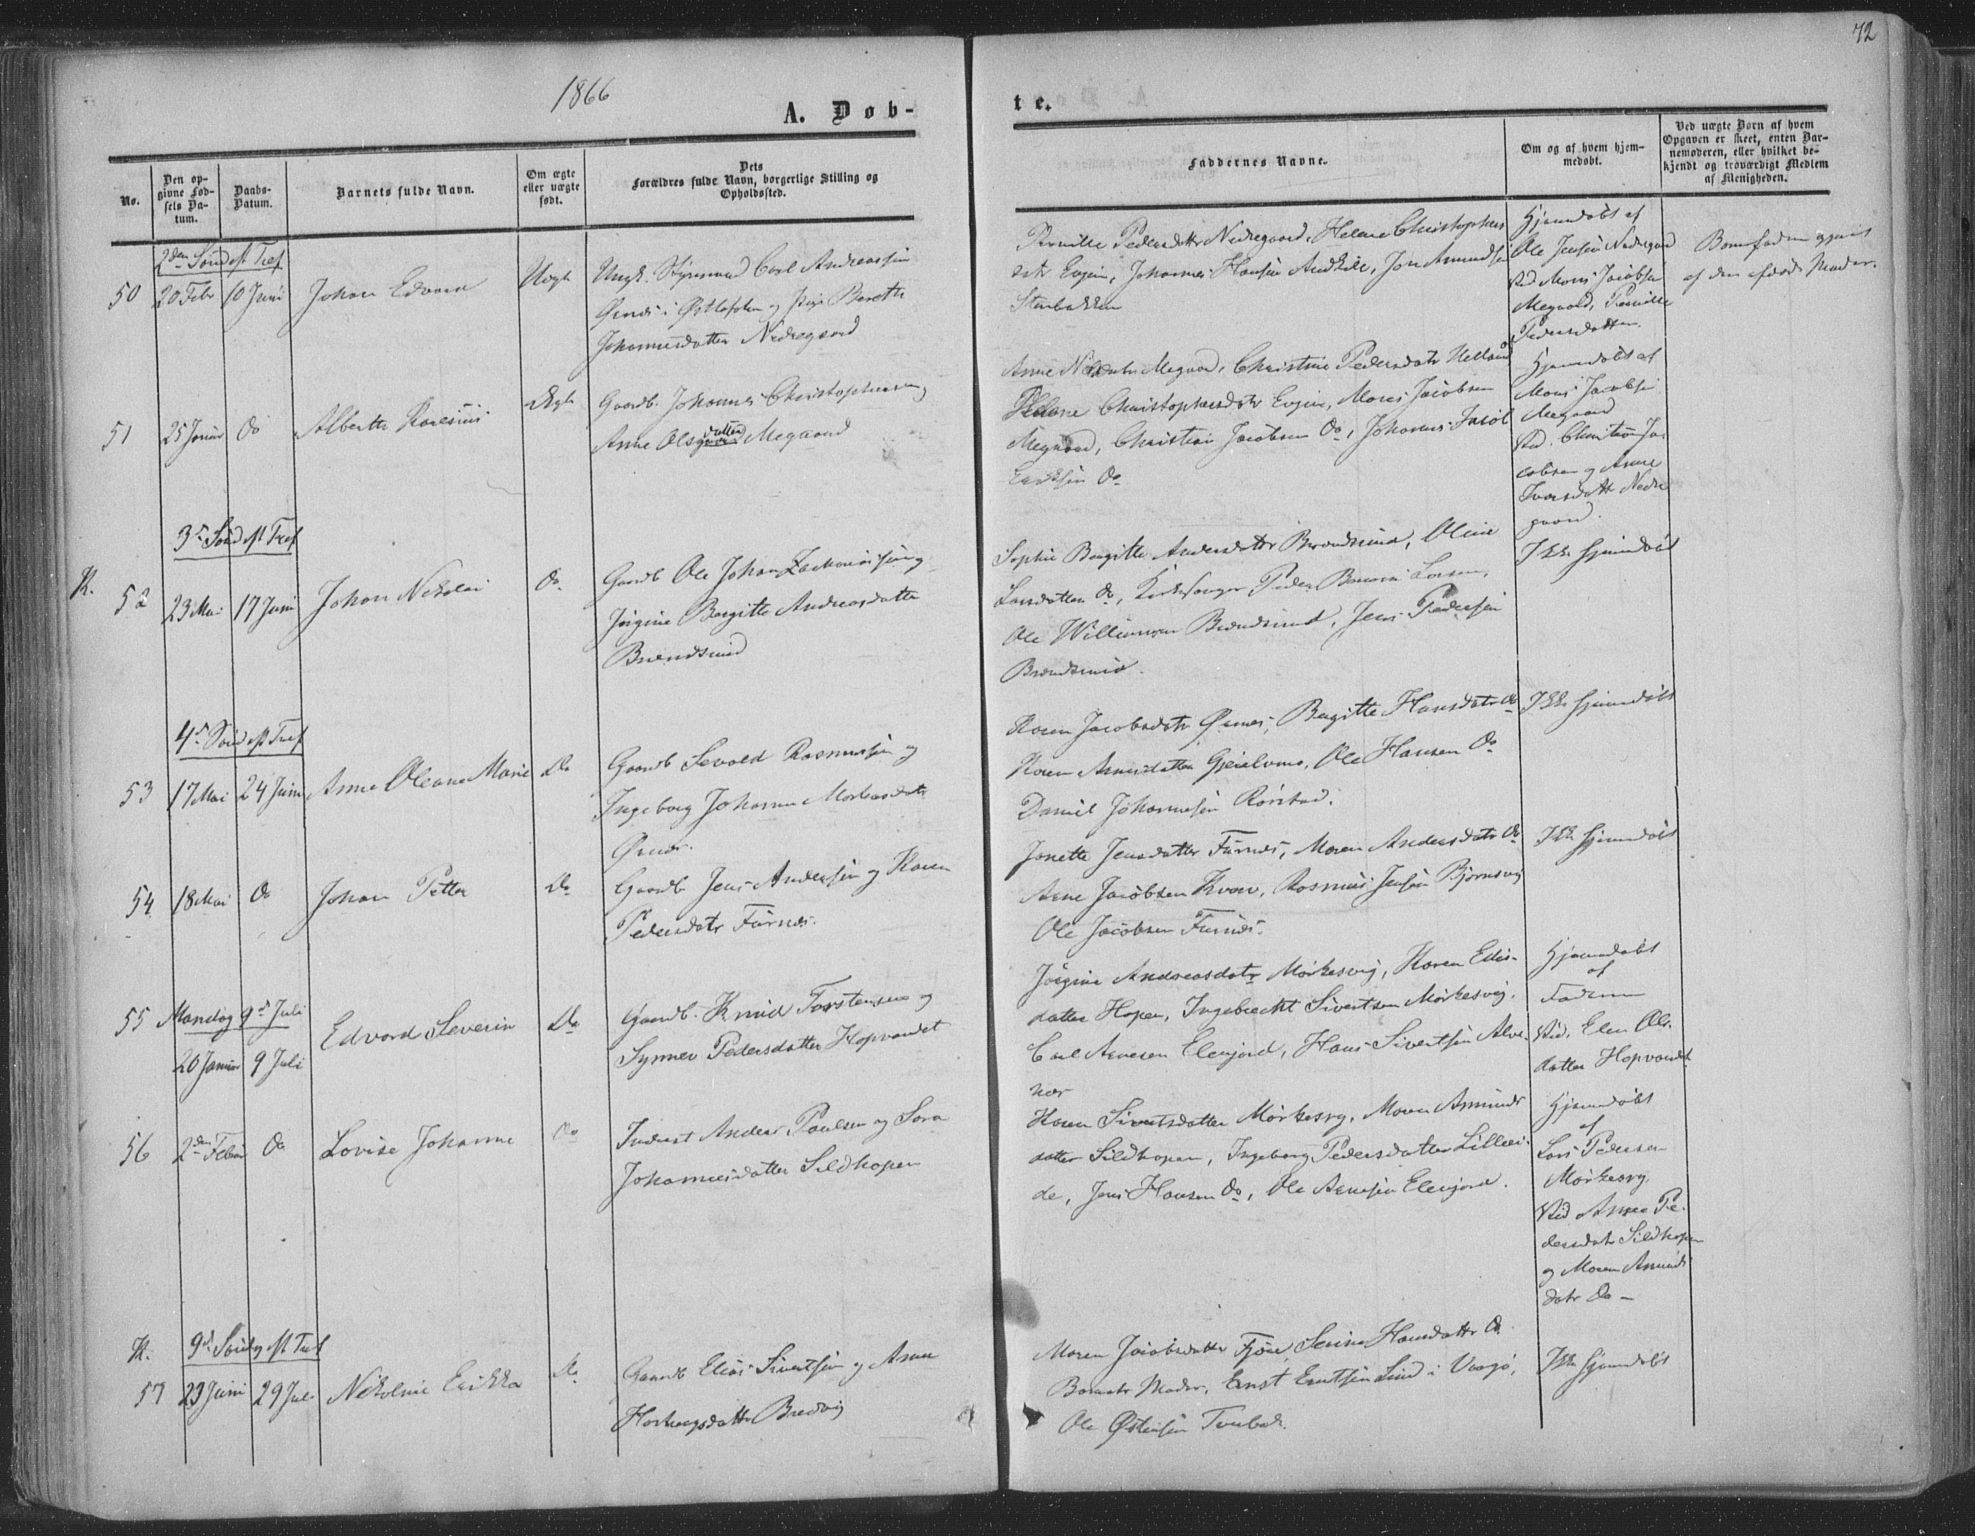 1866
72
A. Døb-
te.
No.
Den op-
givne Fød-
sels Da-
tum.
Daabs-
Datum.
Barnets fulde Navn.
Om ægte
eller uægte
født.
Dets
Forældres fulde Navn, borgerlige Stilling og
Opholdssted.
Faddernes Navne.
Om og af hvem hjem-
medøbt.
Ved uægte Børn af hvem
Opgaven er skeet, enten Bar-
nemoderen, eller hvilket be-
kjendt og troværdigt Medlem
af Menigheden.
2den Sønd eft Tref
50
20 Febr
10 Juni
Johan Edvard
Uægte
Ungk. Styrmand Carl Andreassen
Ørnes i og Pige Bereth
Johannesdatter Nedregaard
Pernille Pedersdatter Nedregaard, Helene Christophers
datr Evjen, Johannes Hansen, Jon Amundsen
Stenbakken
Hjemmedøbt af
Ole Jensen Nedregaard
Sted Mons Jacobsen
Megaard, Pernille
Pedersdatter.
Barnefaderen opgivet
af den Moder.
51
25 Januar
Do
Alberth
Ægte
Gaardb. Johannes Christophersen og
Anne Olsdatter Megaard
Anne Megaard, Christine Pedersdatr
Helene Christophersdatr Evjen, Mons Jacobsen
Megaard, Christian Jacobsen Do, Johannes
Eriksen Do
Hjemmedøbt af
Mons Jacobsen
Megaard
Sted. Christian Ja-
cobsen og Anne
Iversdatr Nedre
gaard.
3die Sønd eft Tref
K.
52
23 Mai
17 Juni
Johan Nikolai
Do
Gaardb Ole Johan Zachariasen og
Jørgine Bergitte Andreasdatter
Brændsund
Sophie Bergitte Andersdatter Brændsund, Oline
Larsdatter Do, Kirkesanger Peder Larsen,
Ole Willumsen Brændsund, Jens Pedersen
Brændsund.
Ikke hjemmedøbt
4de Sønd eft Tref
53
17 Mai
24 Juni
Anne Oleane Marie
Do
Gaardb Sevald Rasmussen og
Ingeborg Johanna Mortensdatr
Ørnes.
Karen Jacobsdatr Ørnes, Bergitte Hansdatr Do
Karen Arnesdatter, Ole Hansen Do
Daniel Johannesen Rørstad.
Ikke hjemmedøbt
54
18 Mai
Do
Johan Petter
Do
Gaardb Jens Andersen og Karen
Pedersdatr Furnes.
Jonette Jensdatter Furnes, Maren Andersdatr Do
Arne Jacobsen Kvæv, Rasmus Jensen Bjørnsvig
Ole Jacobsen Furnes.
Ikke hjemmedøbt
55
Mandag 9de Juli
20 Januar
9 Juli
Edvard Severin
Do
Gaardb. Knud Torstensen og
Synnev Pedersdatter Hopvandet
Jørgine Andreasdatr Mørkesvig, Karen Elias-
datter Hopen, Ingebrecht Sivertsen Mørkesvig,
Carl Arnesen Elvejord, Hans Sivertsen Alve
nær
Hjemmedøbt
af
Faderen
Sted. Elen Ols-
datter Hopvandet
56
2den Febr
Do
Lovise Johanne
Do
Inderst Anders Paulsen og Sara
Johannesdatter Sildhopen
Karen Sivertsdatter Mørkesvig, Maren Amunds
datter Sildhopen, Ingeborg Pedersdatter Lillevi-
de, Jens Hansen Do, Ole Arnesen Elvejord.
Hjemmedøbt
af
Lars Pedersen
Mørkesvig
Sted Anne Pe-
dersdatr Sildhopen
og Maren Amunds
datr Do
K.
9de Søndag eft Tref
57
23 Juni
29 Juli
Nikoline Erikka
Do
Gaardb Elias Sivertsen og Anne
Hartvigsdatter Bredvig
Maren Jacobsdatter Fjøre, Serine Hansdatter Do
Barnets Moder, Ernst Erntsen Lund i Vaagø,
Ole Østensen
Ikke hjemmedøbt